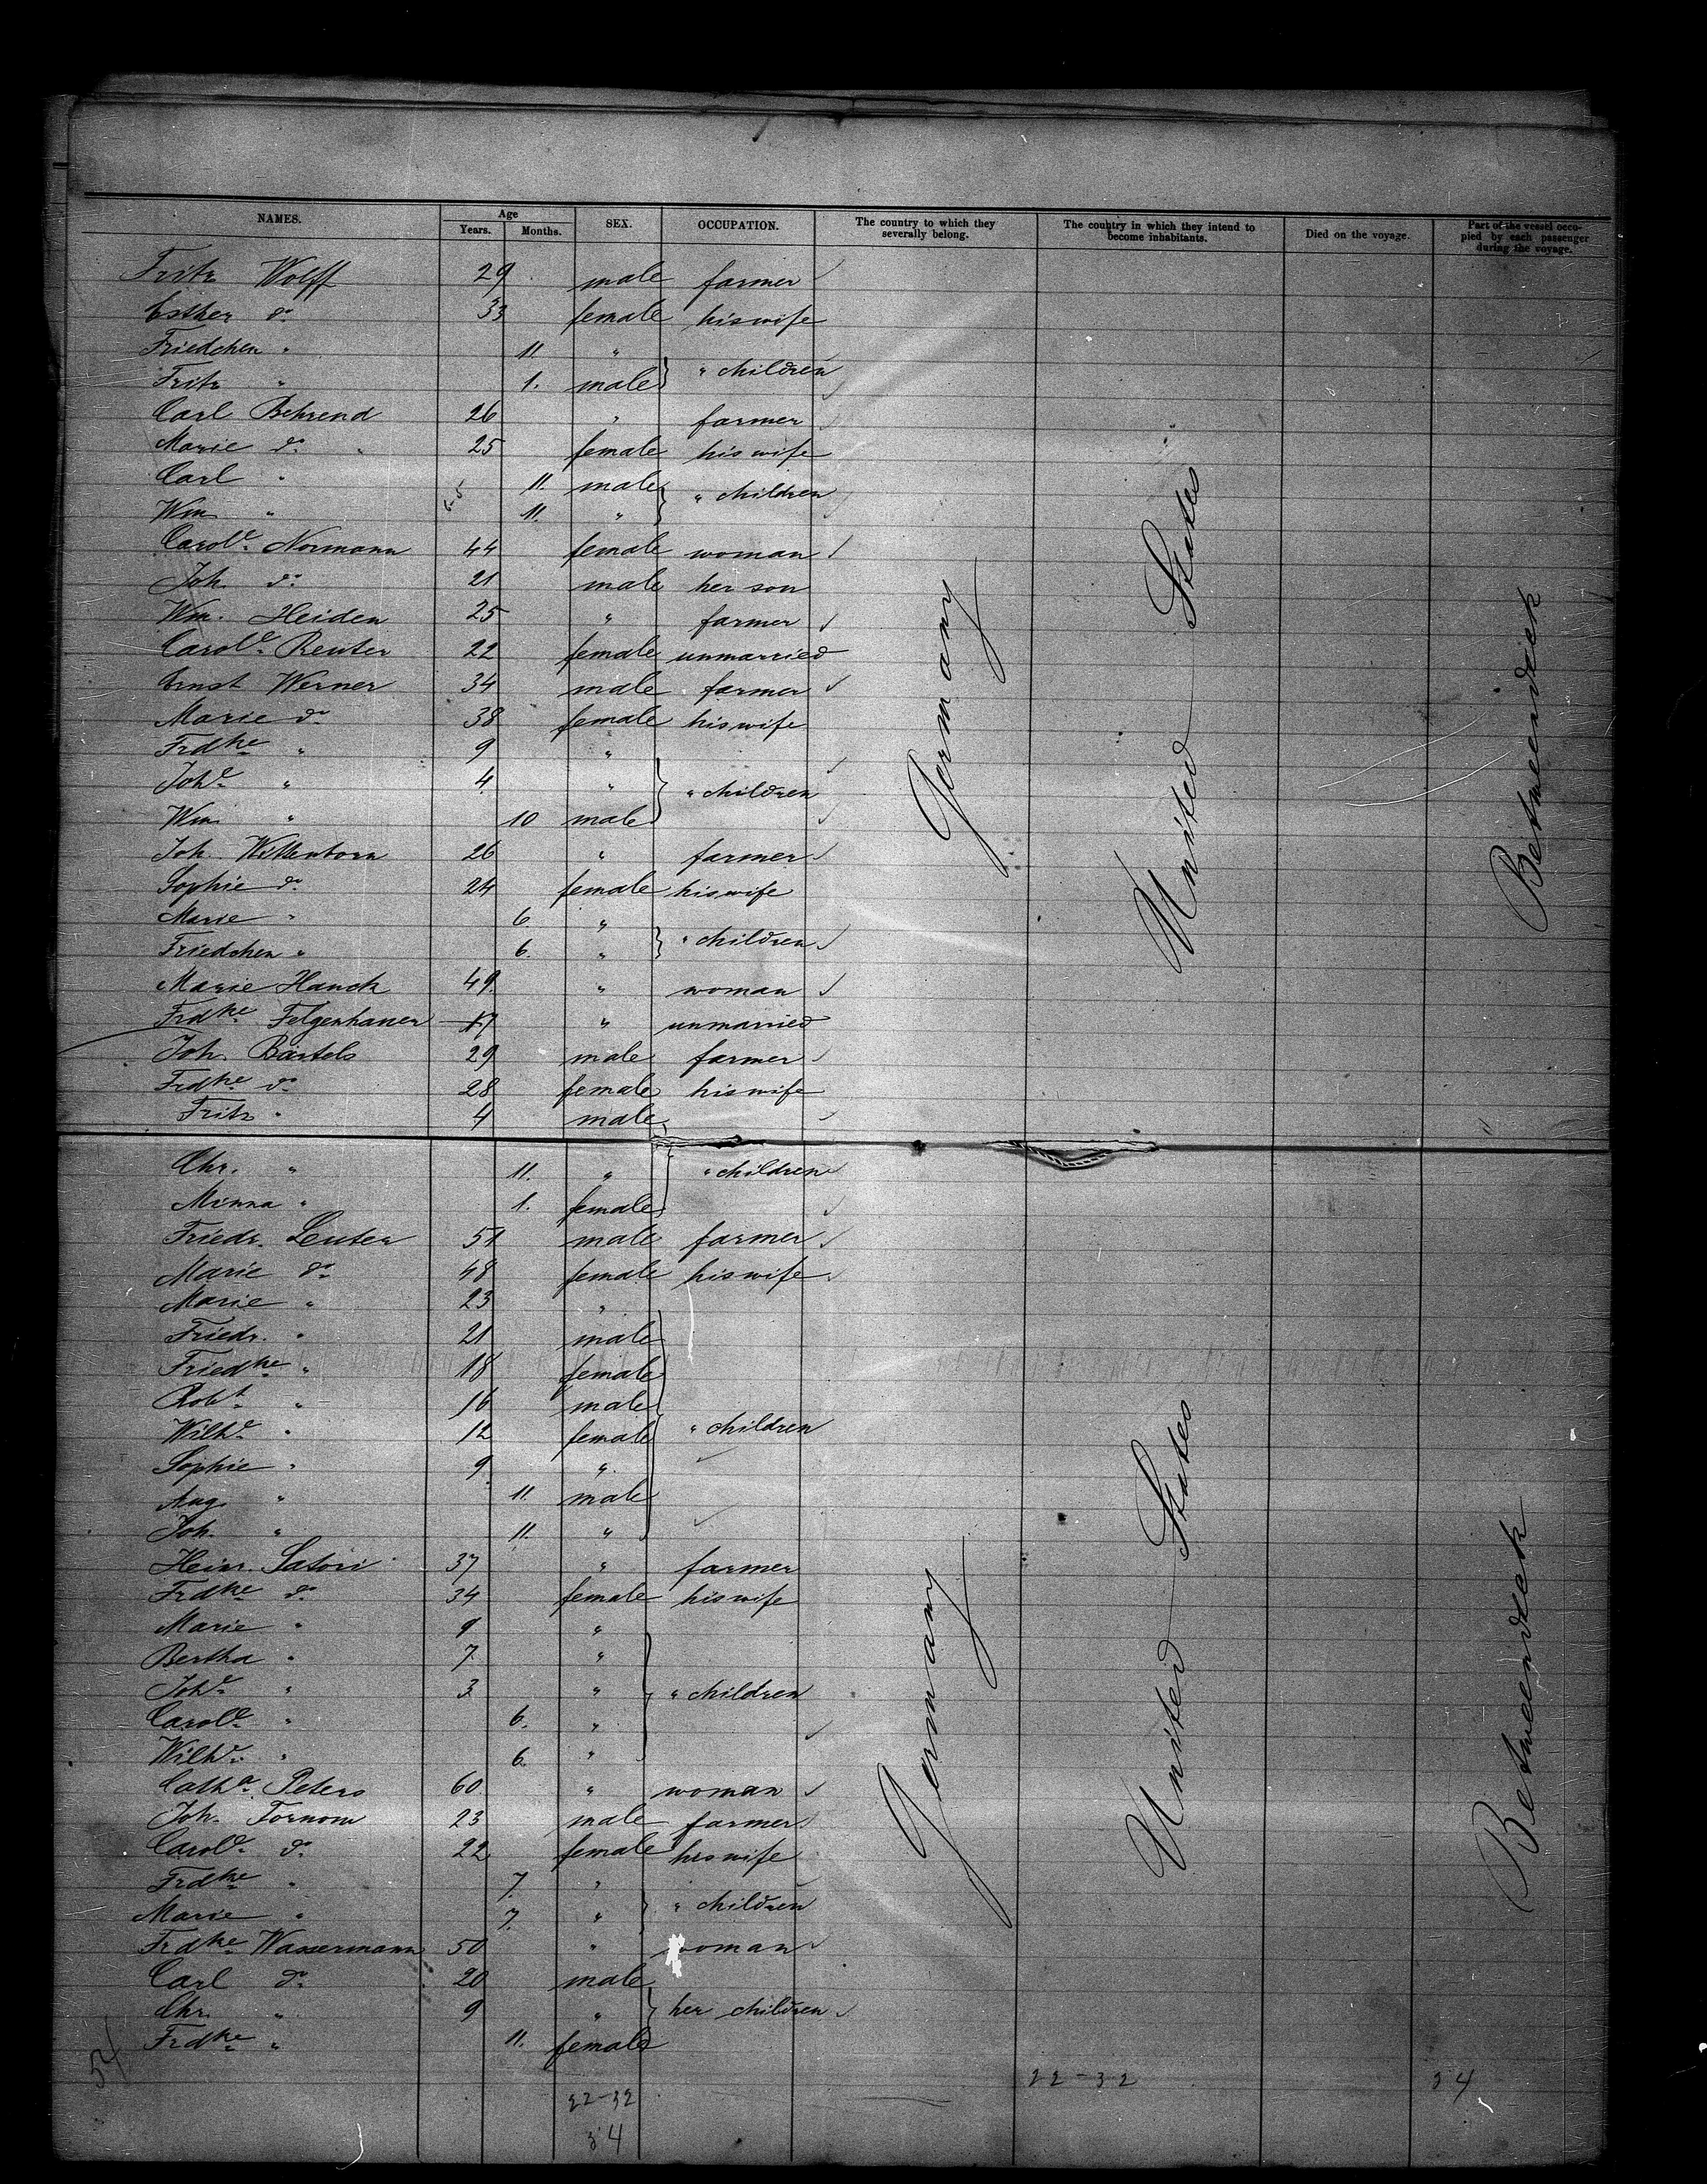 NAMES. Age SEX. OCCUPATION. The country to which they severally belong. The country in which they intend to become inhabitants. Died on the voyage. Part of the vessel occupied by each passenger during the voyage.
Years. Months.
Fritz Wolff 29 male farmer
Esther do 33 female his wife
Friedchen " 11. "
Fritz " 1. male " children
Carl Behrend 26 " farmer
Marie do 25 female his wife
Carl " 11. male " children
Wm " 11. "
Carole. Normann 44 female woman
Joh. do 21 male her son
Wm. Heiden 25 " farmer
Carole. Reuter 22 female unmarried
Ernst Werner 34 male farmer
Marie do 38 female his wife
Frdke " 9 "
Johe " 4 " " children
Wm " 10 male
Joh. Wittenborn 26 " farmer
Sophie do 24 female his wife
Marie " 6. "
Friedchen " 6. " " children
Marie Hauck 49 " woman
Frdke Felgenhauer 17 " unmarried
Joh. Bartels 29 male farmer
Frdke do 28 female his wife
Fritz " 4 male
Germany United States Betweendeck
Chr. " 11. " " children
Minna " 1. female
Friedr. Leuter 51 male farmer
Marie do 48 female his wife
Marie " 23 "
Friedr. " 21 male
Friedke " 18 female
Robt " 16 male
Wilhe " 12 female " children
Sophie " 9 "
Aug. " 11. male
Joh. " 11. "
Heinr. Satori 37 " farmer
Frdke do 34 female his wife
Marie " 9 "
Bertha " 7 "
Johe " 3 " " children
Carole " 6. "
Wilhe " 6 "
Catha Peters 60 " woman
Joh. Tornow 23 male farmer
Carole do 22 female his wife
Frdke " 7. "
Marie " 7. " " children
Frdke Wassermann 50 " woman
Carl do 20 male
Chr. " 9 " her children
Frdke " 11. female
Germany United States Betweendeck
54 22-32 22-32 34
34